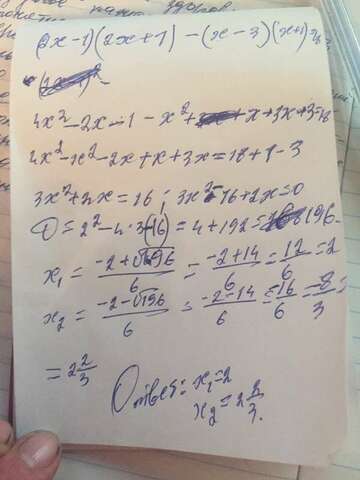 (2x-1)(2x+1)-(x-3)(x+1)=18
4x²-2x-1-x²+x+3x+3=18
4x²-x²-2x+x+3x=18+1-3
3x²+2x=16; 3x²-16+2x=0
D=2²-4·3(-16)=4+192=196
x₁=(-2+√196)/6=(-2+14)/6=12/6=2
x₂=(-2-√196)/6=(-2-14)/6=-16/6=-8/3
=2 2/3
Ответ: x₁=2
x₂=2 2/3.